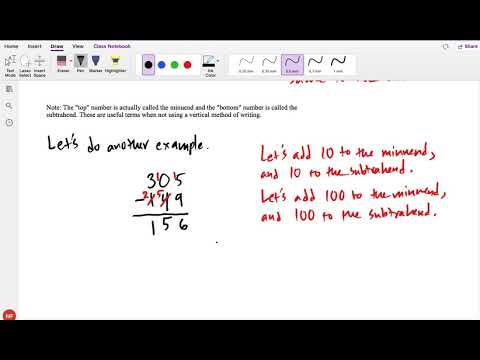 Home Insert Draw View Class Notebook
Text Mode Lasso Select Insert Space Eraser Pen Marker Highlighter Ink Color 0.25 mm 0.35 mm 0.5 mm 0.7 mm 1 mm
Note: The "top" number is actually called the minuend and the "bottom" number is called the
subtrahend. These are useful terms when not using a vertical method of writing.
Let's do another example.
Let's add 10 to the minuend,
and 10 to the subtrahend.
Let's add 100 to the minuend,
and 100 to the subtrahend.
3 1 0 1 5
- 2 1 5 4 9
1 5 6
NF